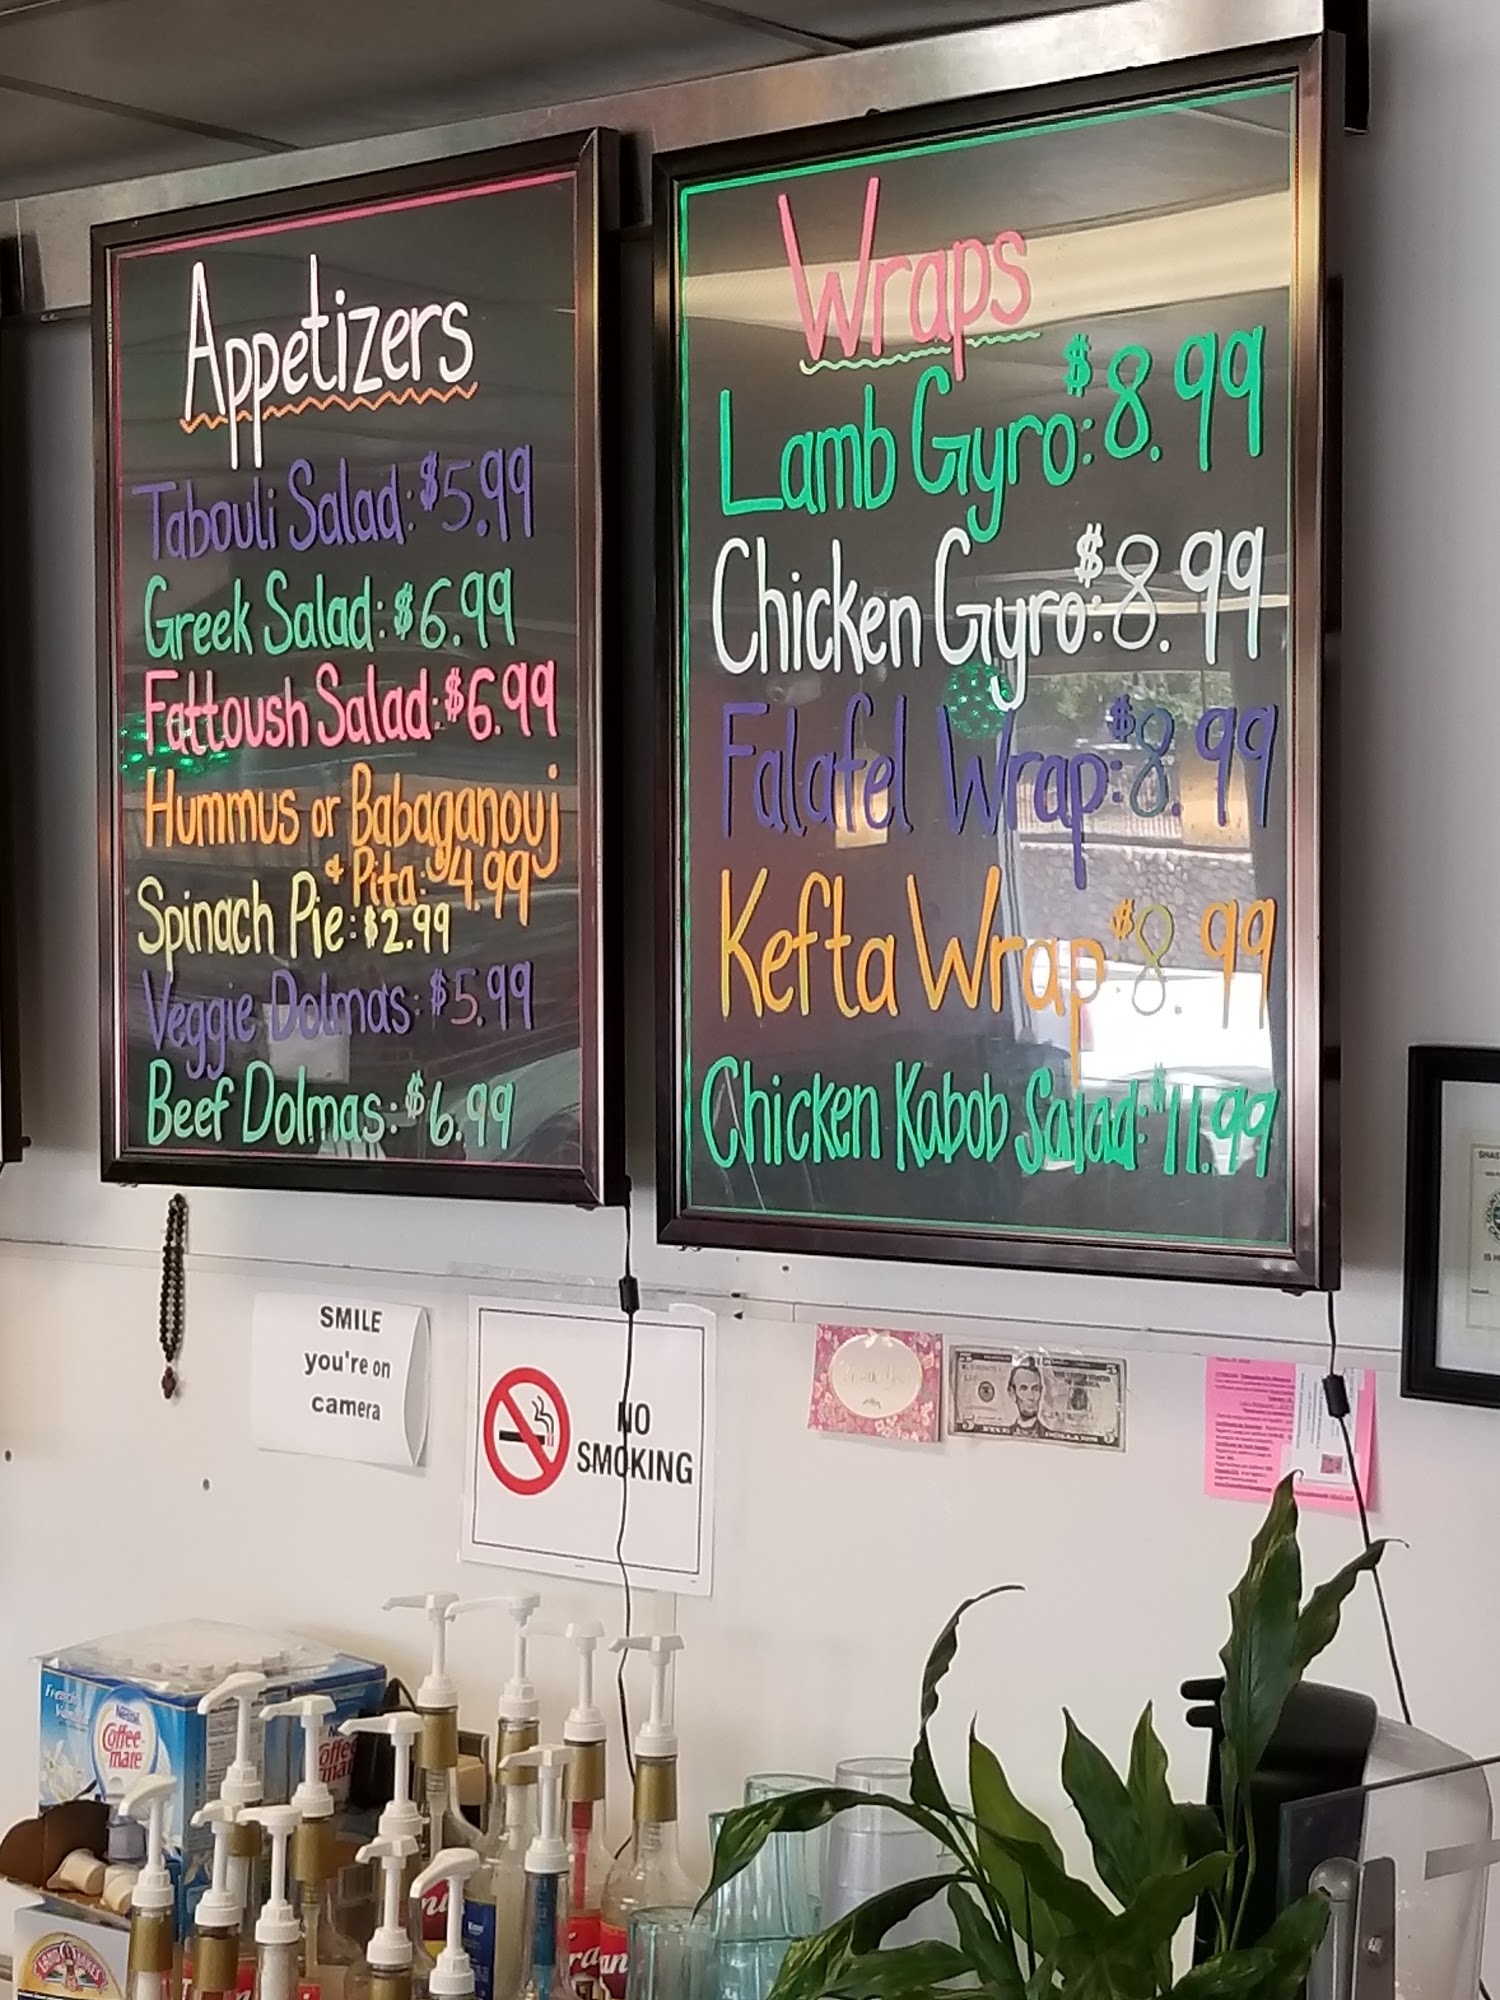 Appetizers
Tabouli Salad: $5.99
Greek Salad: $6.99
Fattoush Salad: $6.99
Hummus or Babaganouj
& Pita: $4.99
Spinach Pie: $2.99
Veggie Dolmas: $5.99
Beef Dolmas: $6.99
Wraps
Lamb Gyro: $8.99
Chicken Gyro: $8.99
Falafel Wrap: $8.99
Kefta Wrap $8.99
Chicken Kabob Salad: $11.99
SMILE
you're on
camera
NO
SMOKING
French
Vanilla
Nestle
Coffee-
mate
LAND O LAKES